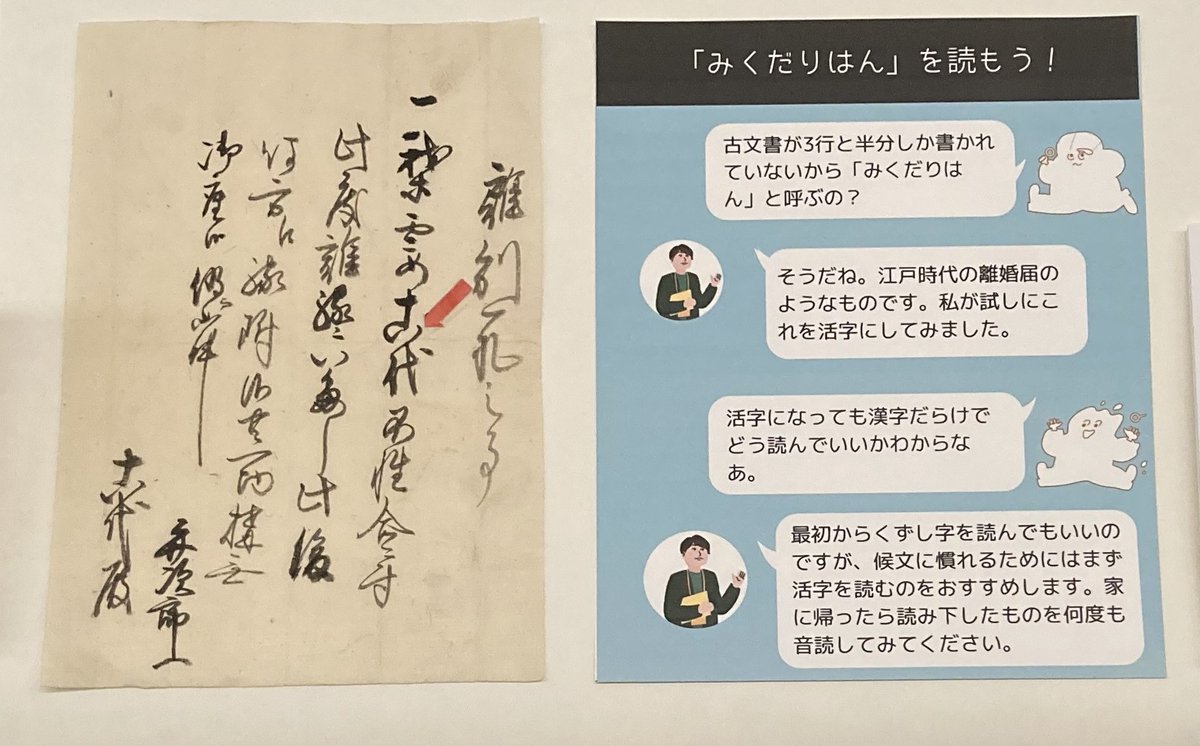 離別一札之事
一 代不性合ニ付
此度離縁いたし此後
何方江縁附候共一向構無
御座候仍如件
代殿
「みくだりはん」を読もう!
古文書が3行と半分しか書かれ
ていないから「みくだりは
ん」と呼ぶの?
そうだね。江戸時代の離婚届の
ようなものです。私が試しにこ
れを活字にしてみました。
活字になっても漢字だらけで
どう読んでいいかわからな
あ。
最初からくずし字を読んでもいいの
ですが、候文に慣れるためにはまず
活字を読むのをおすすめします。家
に帰ったら読み下したものを何度も
音読してみてください。